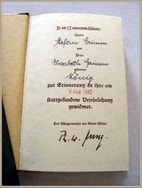 Den Neuvermählten:
Herrn
Stefan Grimm
und
Frau
Elisabeth Grimm
geborene
König
zur Erinnerung an ihre am
8. Aug. 1942
stattgefundene Verehelichung
gewidmet.
Der Bürgermeister der Stadt Wien: